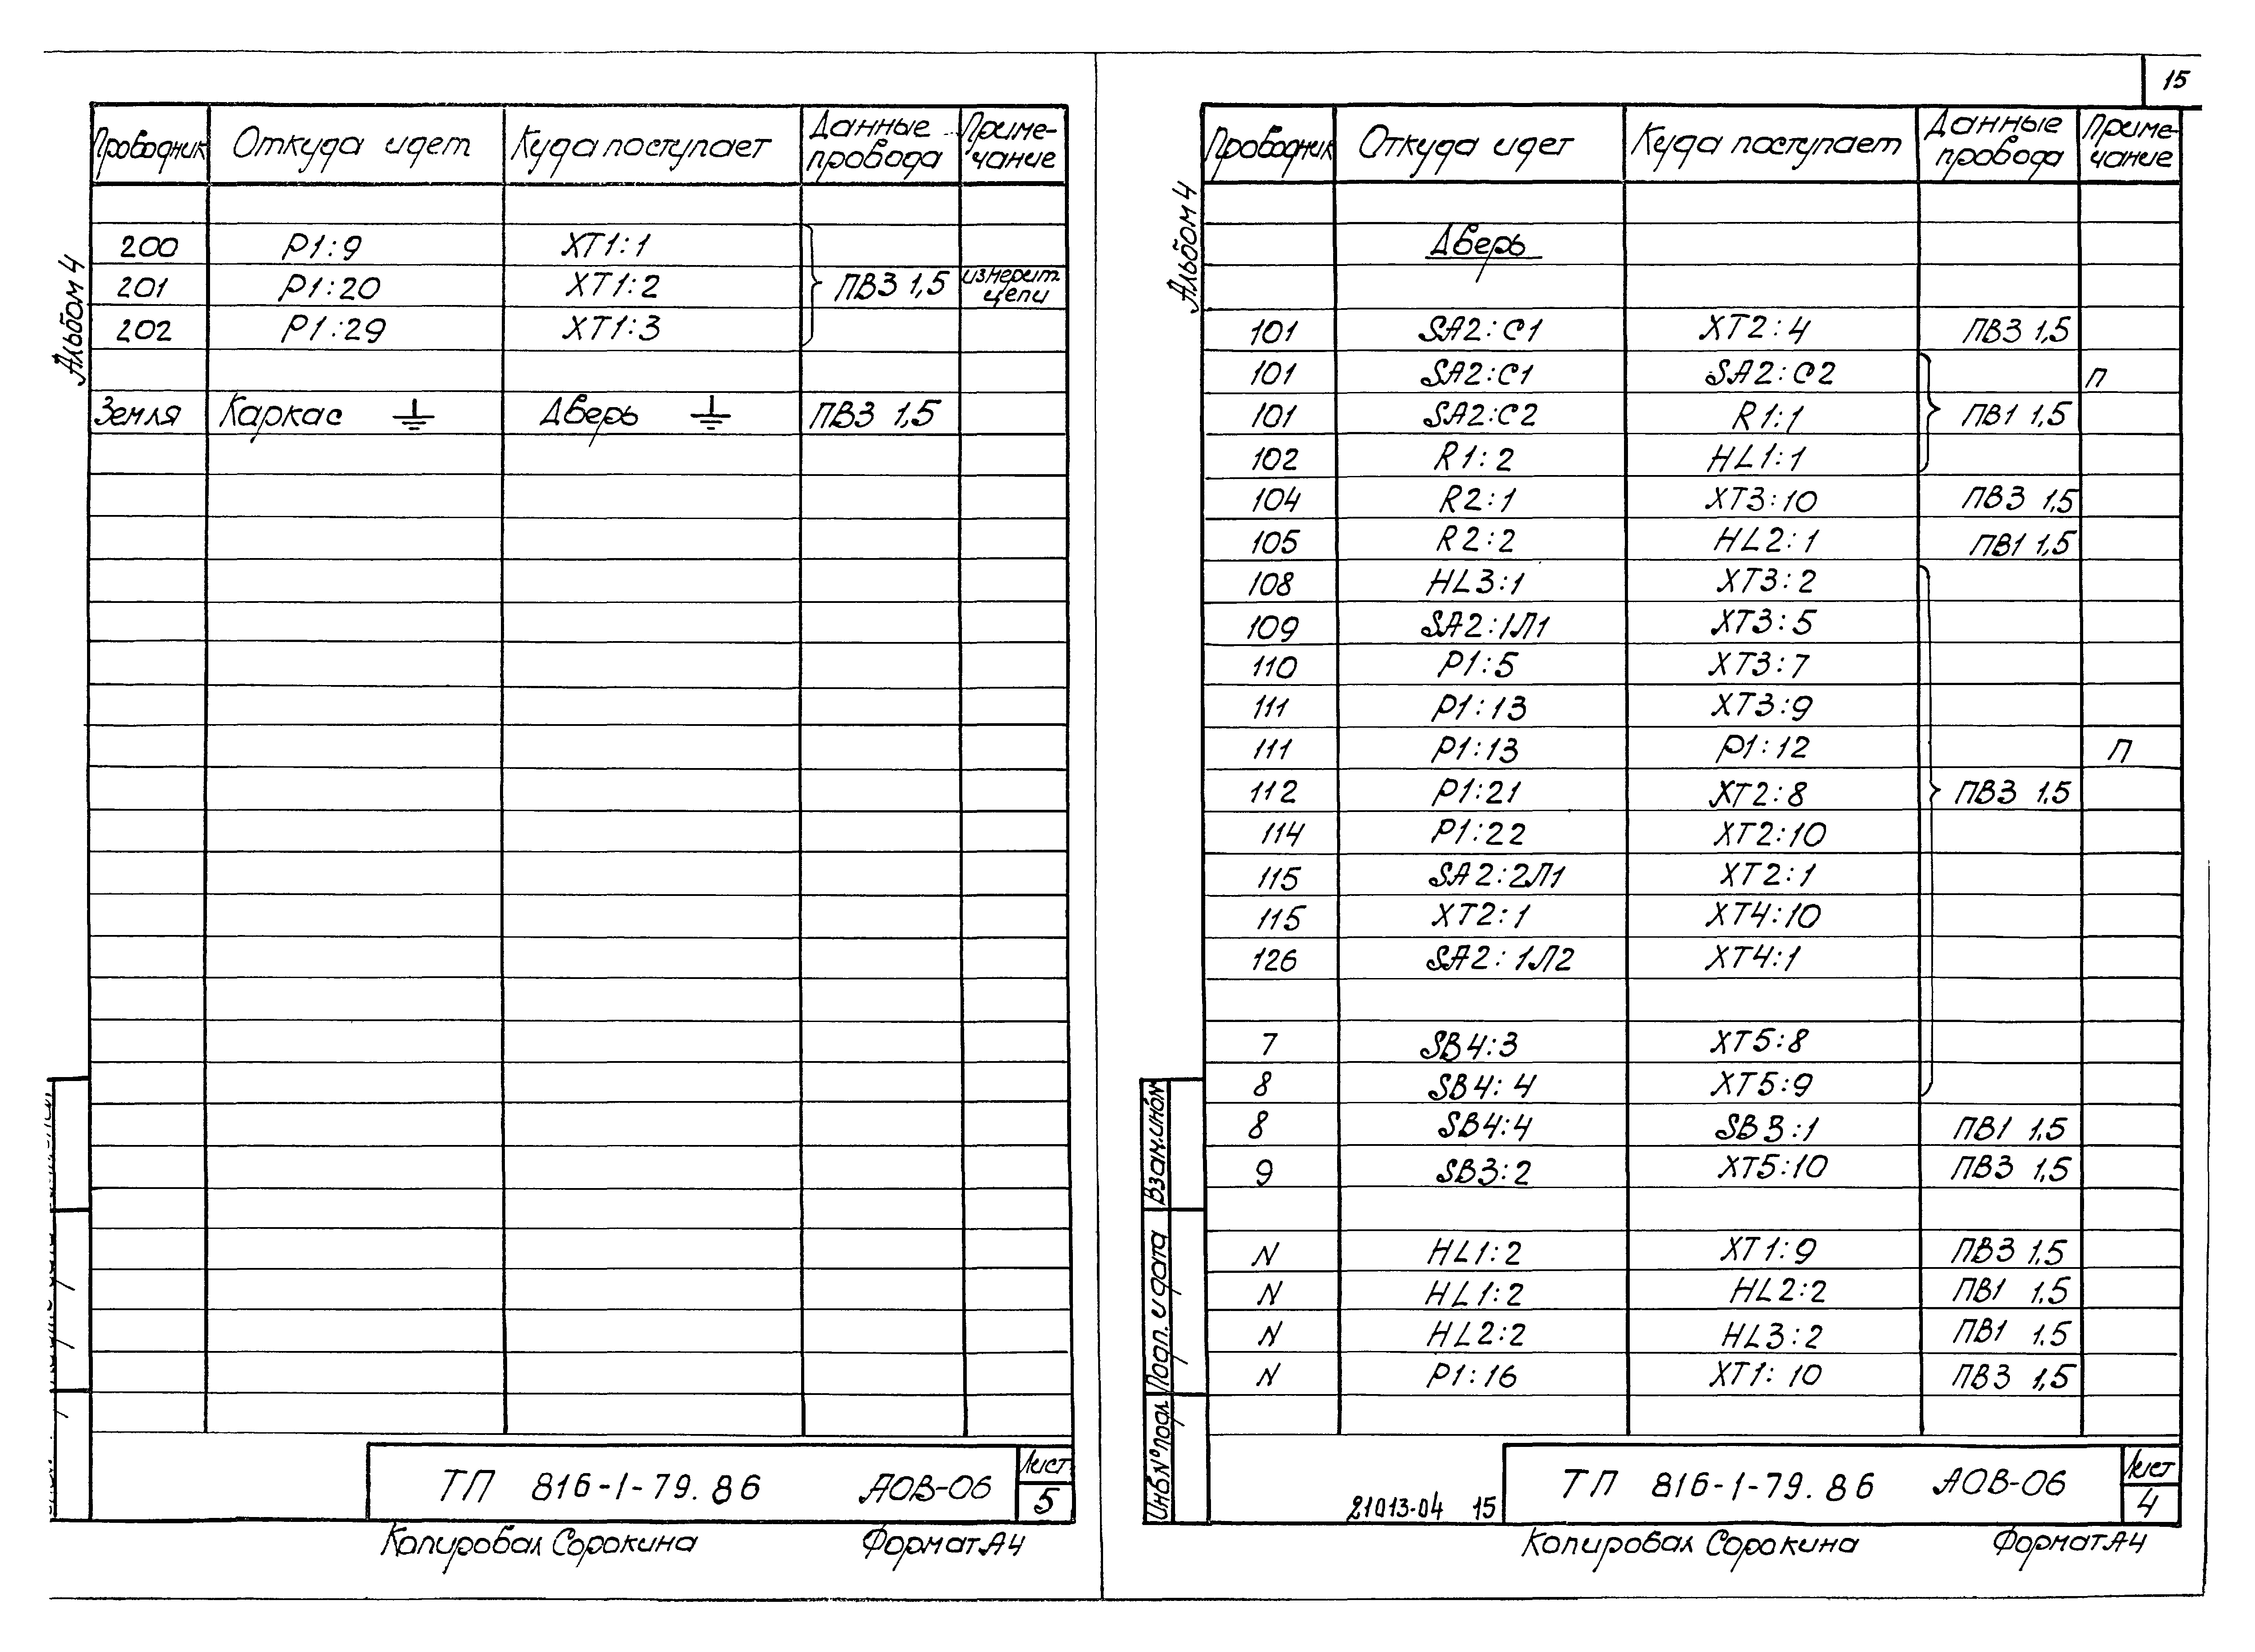 15
Альбом 4
Проводник Откуда идет Куда поступает Данные провода Приме-чание
200 P1:9 XT1:1
201 P1:20 XT1:2 ПВ3 1,5 измерит. цепи
202 P1:29 XT1:3
Земля Каркас ⏚ Дверь ⏚ ПВ3 1,5
ТП 816-1-79.86 АОВ-06
Лист
5
Копировал Сорокина Формат А4
Альбом 4
Проводник Откуда идет Куда поступает Данные провода Приме-чание
Дверь
101 SA2:C1 XT2:4 ПВ3 1,5
101 SA2:C1 SA2:C2 п
101 SA2:C2 R1:1 ПВ1 1,5
102 R1:2 HL1:1
104 R2:1 XT3:10 ПВ3 1,5
105 R2:2 HL2:1 ПВ1 1,5
108 HL3:1 XT3:2
109 SA2:1Л1 XT3:5
110 P1:5 XT3:7
111 P1:13 XT3:9
111 P1:13 P1:12 П
112 P1:21 XT2:8 ПВ3 1.5
114 P1:22 XT2:10
115 SA2:2Л1 XT2:1
115 XT2:1 XT4:10
126 SA2:1Л2 XT4:1
7 SB4:3 XT5:8
8 SB4:4 XT5:9
8 SB4:4 SB3:1 ПВ1 1.5
9 SB3:2 XT5:10 ПВ3 1.5
N HL1:2 XT1:9 ПВ3 1.5
N HL1:2 HL2:2 ПВ1 1.5
N HL2:2 HL3:2 ПВ1 1.5
N P1:16 XT1:10 ПВ3 1,5
Взам.инв№
Подп. и дата
Инв.№ подл.
21013-04 15
ТП 816-1-79.86 АОВ-06
Лист
4
Копировал Сорокина Формат А4